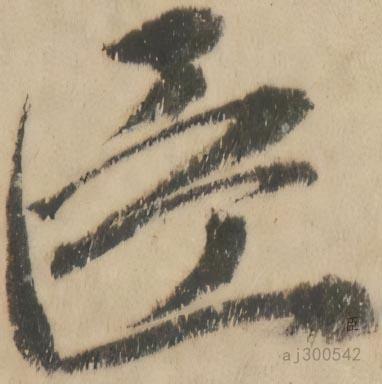 臣
aj300542